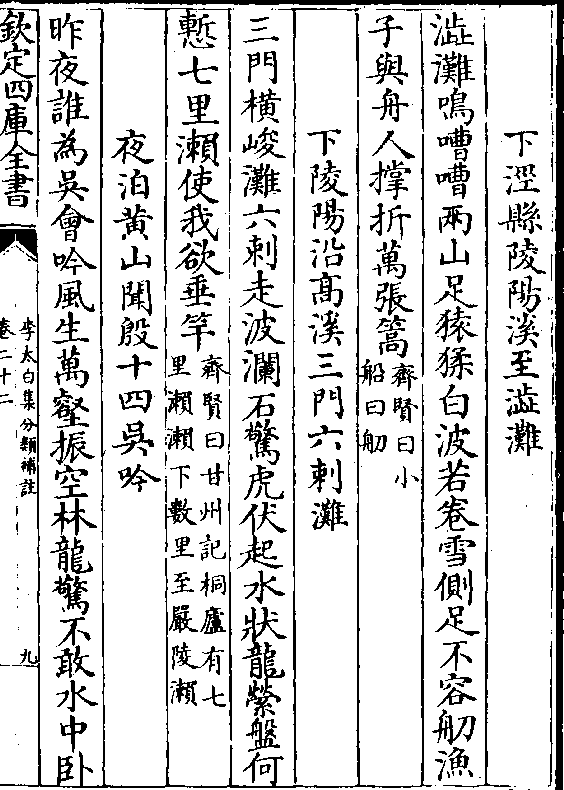 下涇縣陵陽溪至澁灘
澁灘鳴嘈嘈兩山足猿猱白波若卷雪側足不容舠漁
子與舟人撑折萬張篙齊賢曰小
船曰舠
下陵陽沿髙溪三門六刺灘
三門横峻灘六刺走波瀾石驚虎伏起水狀龍縈盤何
慙七里瀬使我欲垂竿齊賢曰甘州記桐廬有七
里瀬瀬下數里至嚴陵瀬
夜泊黄山聞殷十四吳吟
昨夜誰為吳會吟風生萬壑振空林龍驚不敢水中卧
欽定四庫全書
李太白集分類補註
卷二十二
九